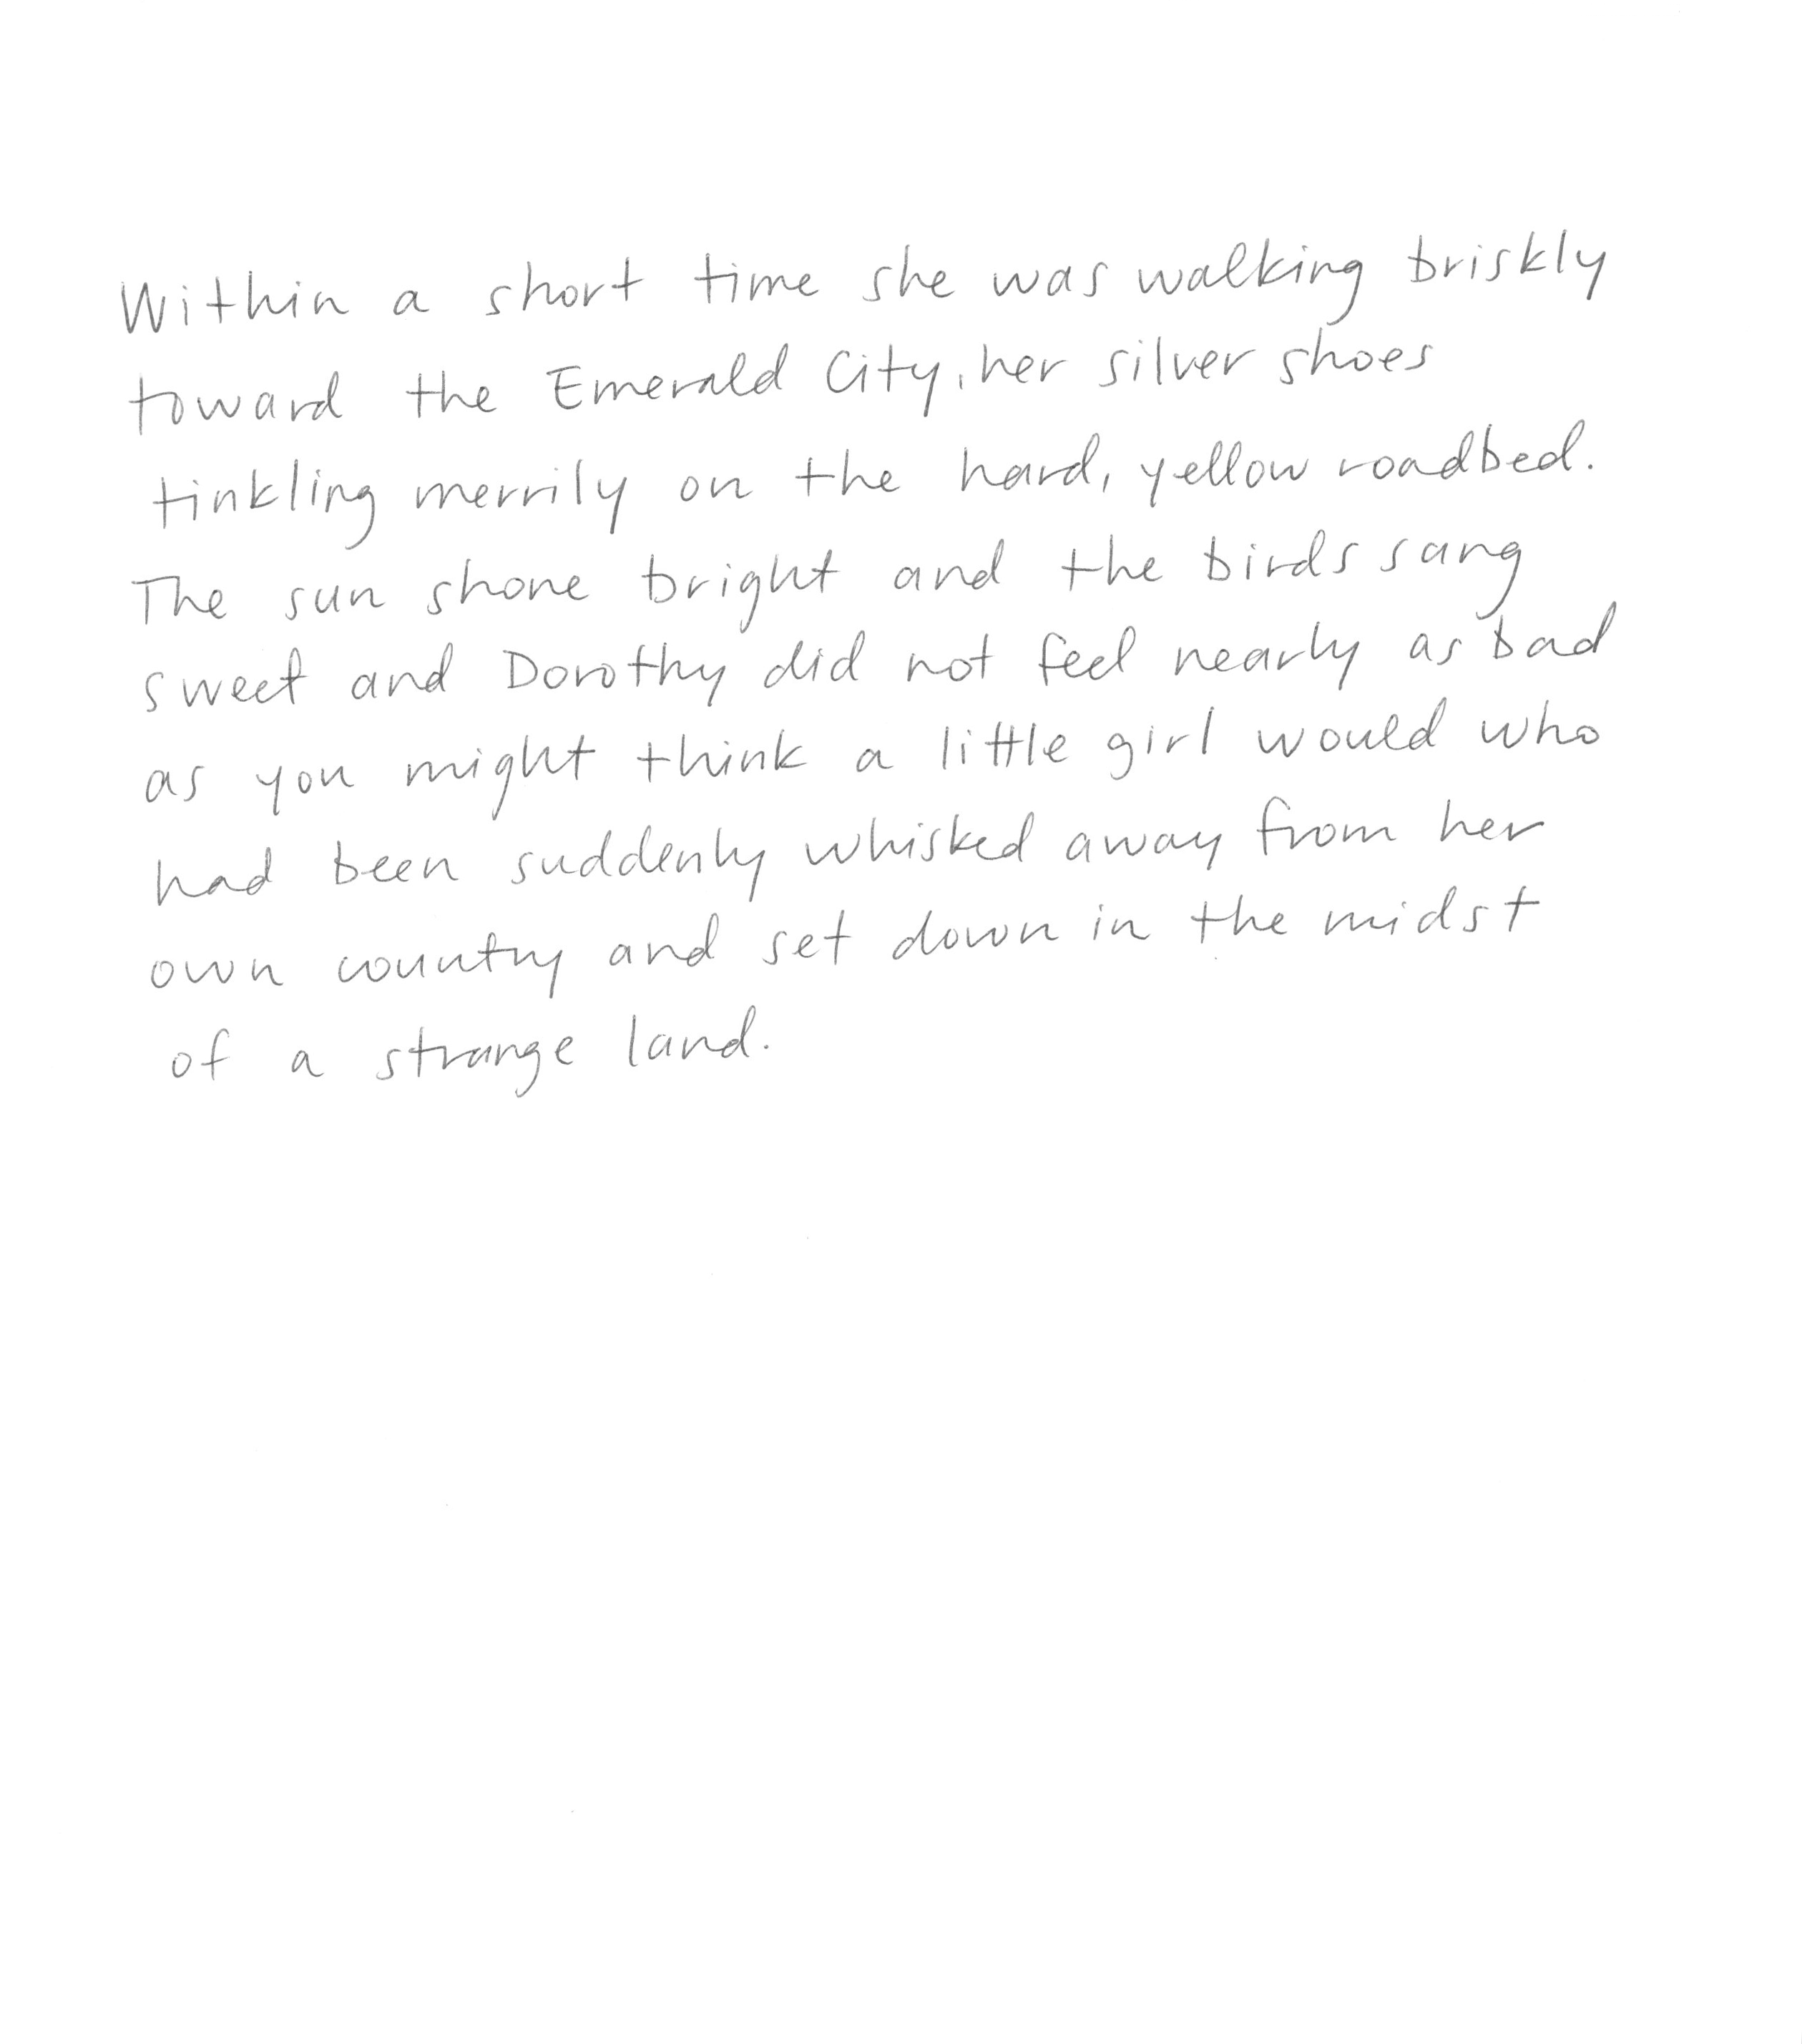 Within a short time she was walking briskly
toward the Emerald City, her silver shoes
tinkling merrily on the hard, yellow roadbed.
The sun shone bright and the birds sang
sweet and Dorothy did not feel nearly as bad
as you might think a little girl would who
had been suddenly whisked away from her
own country and set down in the midst
of a strange land.